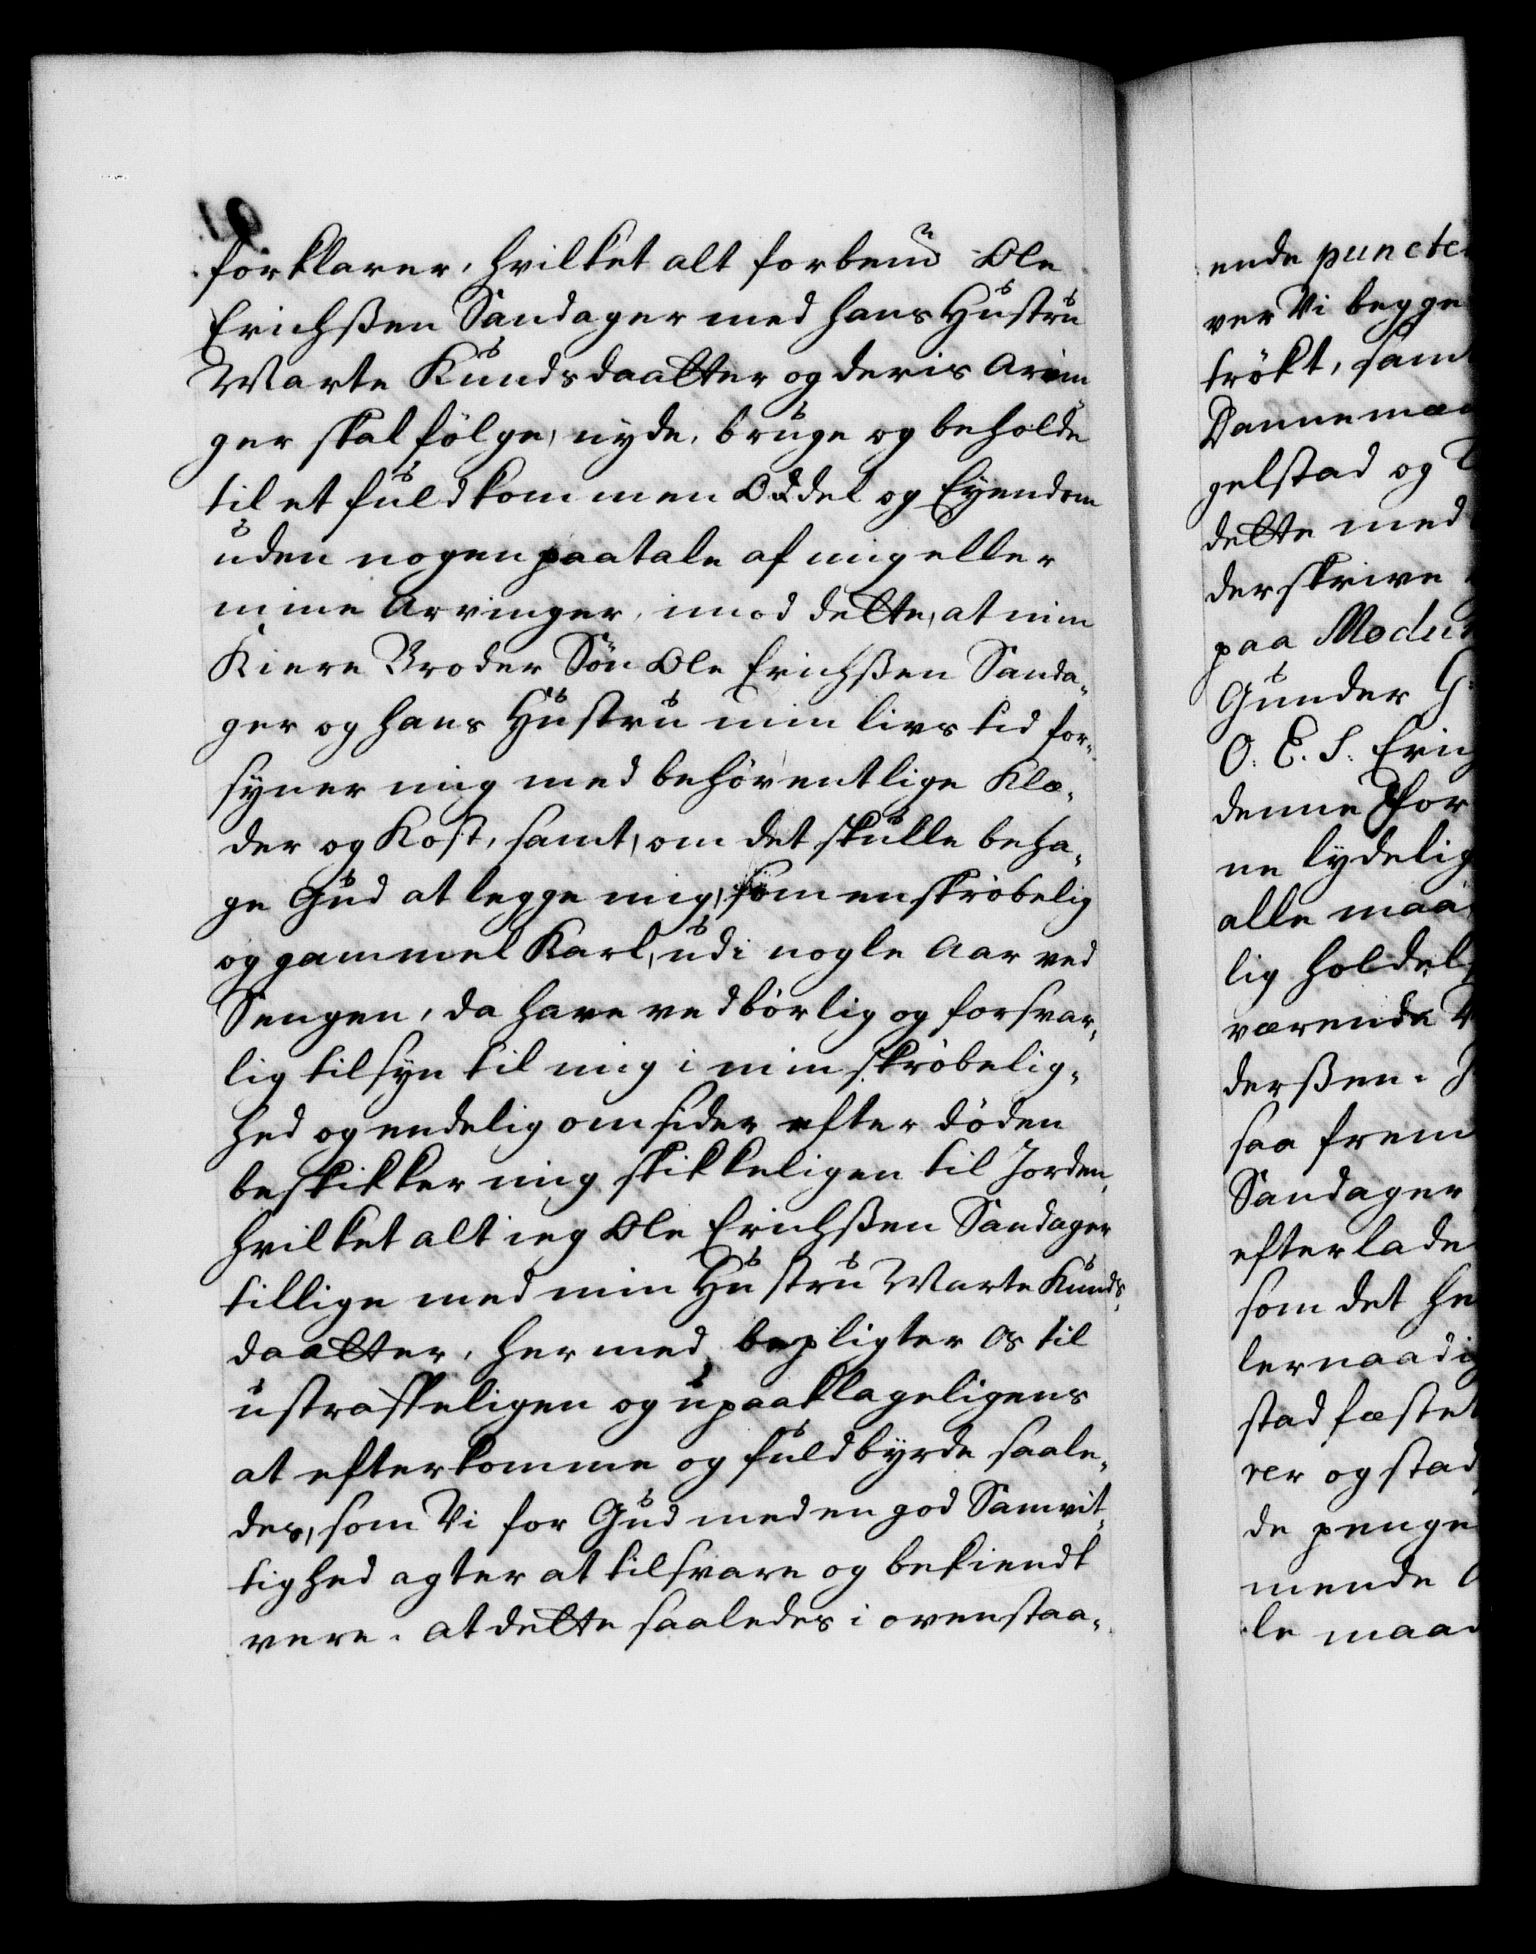 forklarer, hvilket alt forben.te Ole
Erichßen Sandager med hans Hustru
Marte Kundsdaatter og deris Arvin-
ger skal følge, nyde, bruge og beholde
til et fuldkommen Oddel og Eyendom
uden nogen paatale af mig eller
mine Arvinger, imod dette, at min
Kiere Broder Søn Ole Erichßen Sanda-
ger og hans Hustru min livs tid for-
syner mig med behørentlige Klæ-
der og Kost, samt, om det skulle beha-
ge Gud at legge mig, som en skrøbelig
og gammel Karl, udi nogle Aar ved
Sengen, da have vedbørlig og forsvar-
lig tilsyn til mig i min skrøbelig-
hed og endelig omsider efter døden
beskikker mig skikkeligen til Jorden,
hvilket alt ieg Ole Erichßen Sandager
tillige med min Hustru Marte Kunds-
daatter, hermed bepligter os til
ustraffeligen og upaaklageligens
at efterkomme og fuldbyrde saale-
des, som Vi for Gud med en god Samvit-
tighed agter at tilsvare og bekiendt
være. at dette saaledes i ovenstaa-
ende puncte
ver Vi begge
trökt, samt
Dannemæ
gelstad og
dette med
derskrive
paa Modu
Gunder G:
O: E. S. Eric
denne Thor
ne lydelig
alle maa
lig holdel
værende
derßen. J
saa frem
Sandager
efterlade
som det he
lernaadig
stadfæstet
ver og stad
de penge
mende
le maad